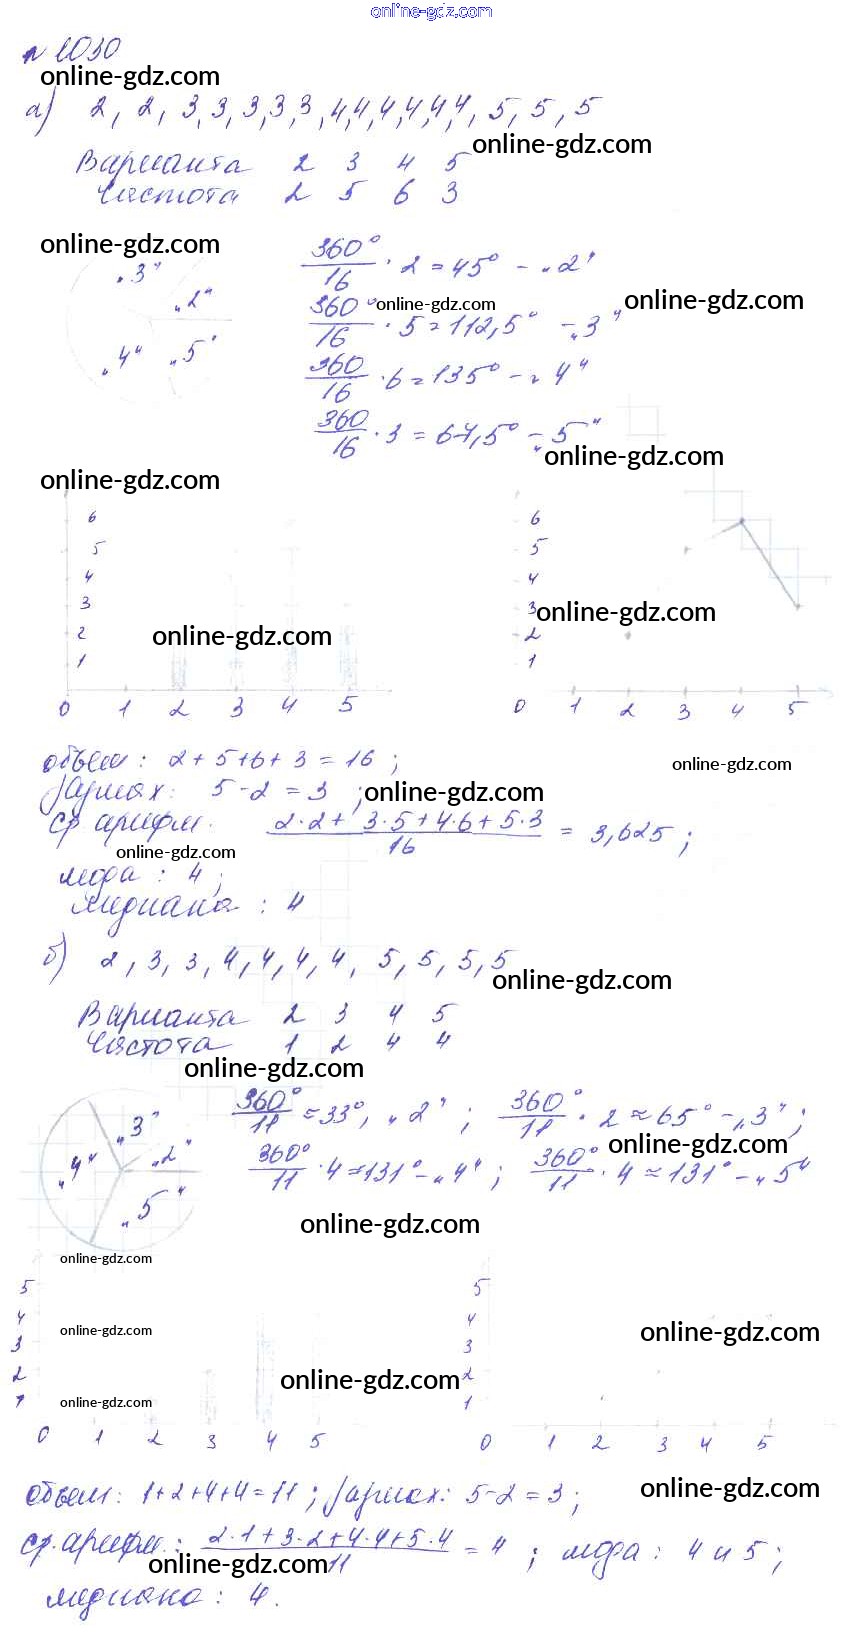 online-gdz.com
№ 1030
online-gdz.com
а) 2, 2, 3, 3, 3, 3, 3, 4, 4, 4, 4, 4, 4, 5, 5, 5
online-gdz.com
Варианта 2 3 4 5
Частота 2 5 6 3
online-gdz.com
„3" „2" „4" „5"
360°/16 · 2 = 45° - „2"
online-gdz.com online-gdz.com
360°/16 · 5 = 112,5° - „3"
360/16 · 6 = 135° - „4"
360/16 · 3 = 67,5° - „5"
online-gdz.com
online-gdz.com
6 6
5 5
4 4
3 3
online-gdz.com
2 2
online-gdz.com
1 1
0 1 2 3 4 5 0 1 2 3 4 5
объем: 2 + 5 + 6 + 3 = 16;
online-gdz.com
размах: 5 - 2 = 3;
online-gdz.com
ср арифм. (2·2 + 3·5 + 4·6 + 5·3)/16 = 3,625;
online-gdz.com
мода: 4;
медиана: 4
б) 2, 3, 3, 4, 4, 4, 4, 5, 5, 5, 5
online-gdz.com
Варианта 2 3 4 5
Частота 1 2 4 4
online-gdz.com
„3" „2" „4" „5"
360°/11 ≈ 33°, „2"; 360°/11 · 2 ≈ 65° - „3";
online-gdz.com
360°/11 · 4 ≈ 131° - „4"; 360°/11 · 4 ≈ 131° - „5"
online-gdz.com
online-gdz.com
5 5
4 4
online-gdz.com online-gdz.com
3 3
2 2
online-gdz.com
1 1
online-gdz.com
0 1 2 3 4 5 0 1 2 3 4 5
объем: 1+2+4+4=11; размах: 5-2=3;
online-gdz.com
ср. арифм.: (2·1+3·2+4·4+5·4)/11 = 4; мода: 4 и 5;
online-gdz.com
медиана: 4.